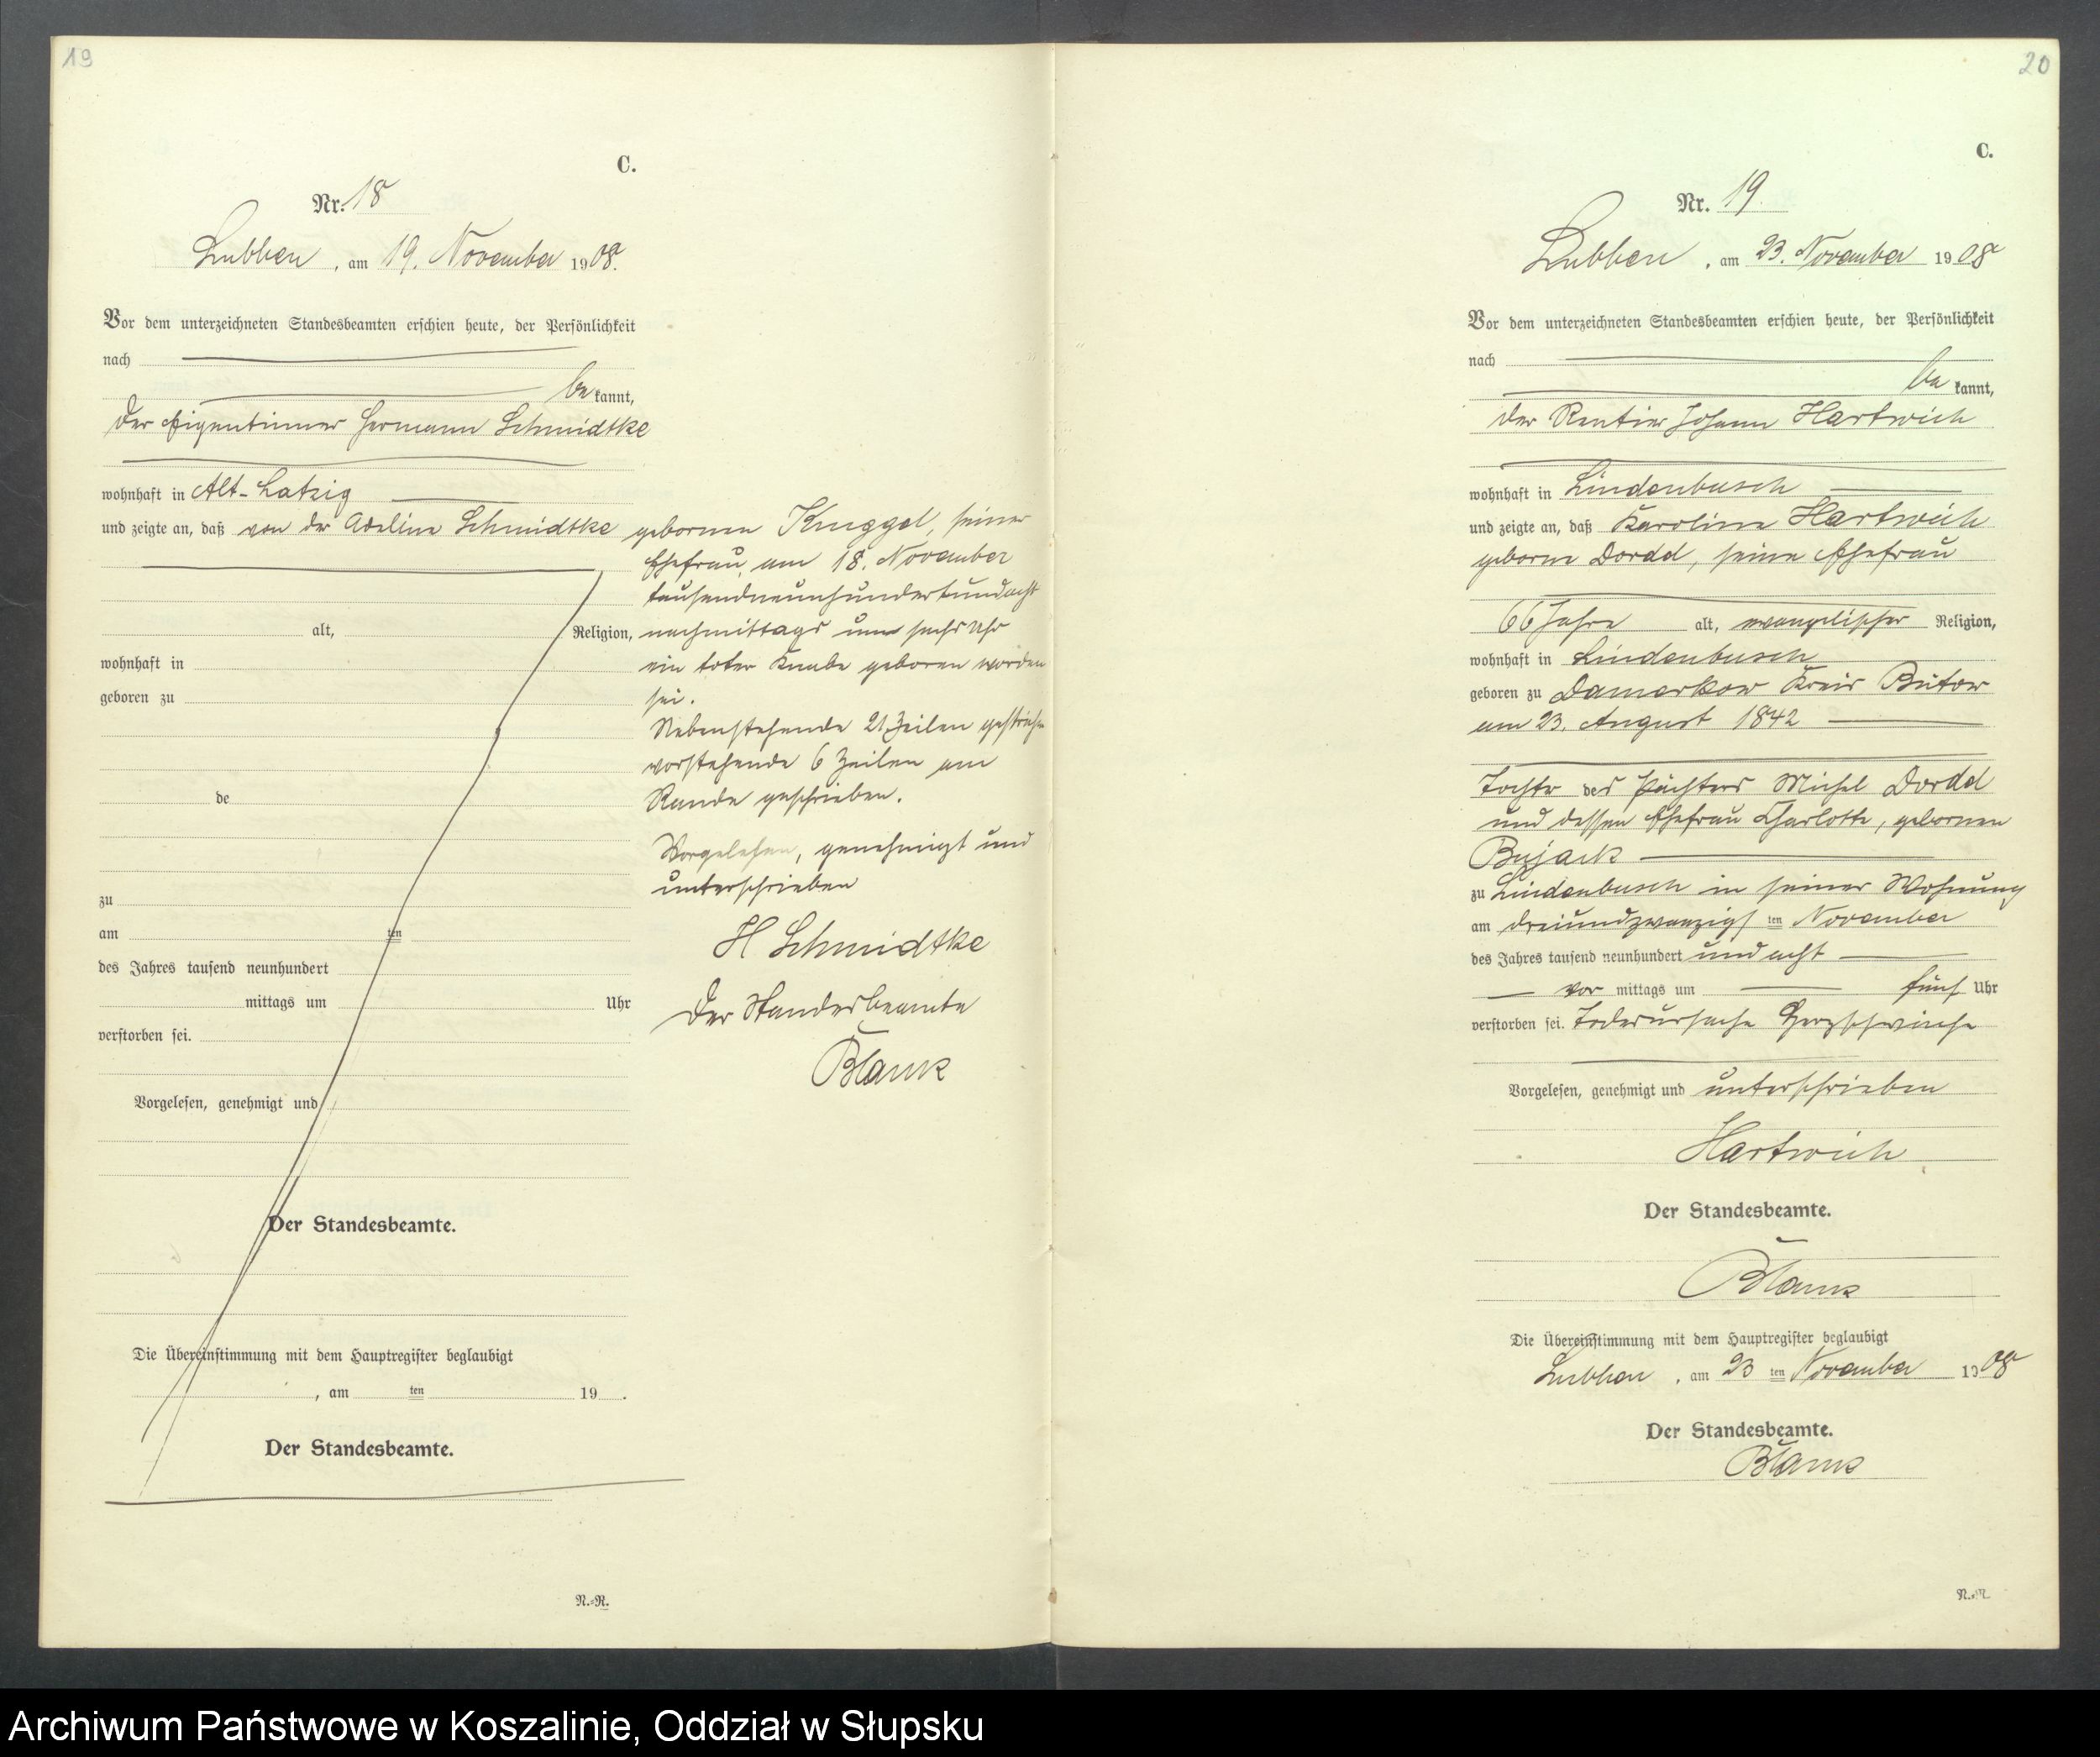 19
C.
Nr. 18
Lubben, am 19. November 1908.
Vor dem unterzeichneten Standesbeamten erschien heute, der Persönlichkeit
nach
be kannt,
der Eigentümer Hermann Schmidtke
wohnhaft in Alt-Latzig
und zeigte an, daß von der Adeline Schmidtke gebornen Kruggel, seiner
Ehefrau, am 18. November
tausendneunhundertundacht
alt, Religion, nachmittags um sechs Uhr
wohnhaft in ein toter Knabe geboren worden
geboren zu sei.
Nebenstehende 21 Zeilen gestrichen
vorstehende 6 Zeilen am
de Rande geschrieben.
Vorgelesen, genehmigt und
unterschrieben
zu
am ten H Schmidtke
des Jahres tausend neunhundert
mittags um Uhr Der Standesbeamte
verstorben sei.
Blank
Vorgelesen, genehmigt und
Der Standesbeamte.
Die Übereinstimmung mit dem Hauptregister beglaubigt
, am ten 19 .
Der Standesbeamte.
N.-R.
20
C.
Nr. 19.
Lubben, am 23. November 1908
Vor dem unterzeichneten Standesbeamten erschien heute, der Persönlichkeit
nach
be kannt,
der Rentier Johann Hartwich
wohnhaft in Lindenbusch
und zeigte an, daß Karoline Hartwich
geborne Dordd, seine Ehefrau
66 Jahre alt, evangelischer Religion,
wohnhaft in Lindenbusch
geboren zu Damerkow Kreis Bütow
am 23. August 1842
Tochter des Pächters Michel Dordd
und dessen Ehefrau Charlotte, gebornen
Bujack
zu Lindenbusch in seiner Wohnung
am dreiundzwanzigs ten November
des Jahres tausend neunhundert und acht
vor mittags um fünf Uhr
verstorben sei. Todesursache Herzschwäche
Vorgelesen, genehmigt und unterschrieben
Hartwich
Der Standesbeamte.
Blank
Die Übereinstimmung mit dem Hauptregister beglaubigt
Lubben, am 23 ten November 1908
Der Standesbeamte.
Blank
N.-R.
Archiwum Państwowe w Koszalinie, Oddział w Słupsku